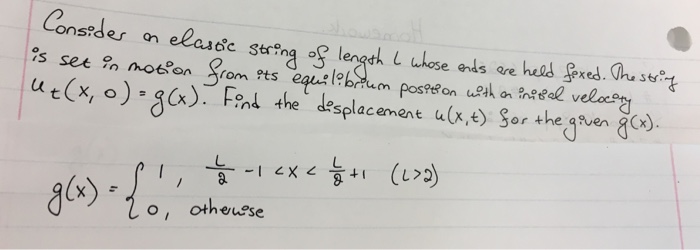 Consider an elastic string of length L whose ends are held fixed. The string
is set in motion from its equilibrium position with an initial velocity
u_t(x, 0) = g(x). Find the displacement u(x,t) for the given g(x).
g(x) = { 1, L/2 - 1 < x < L/2 + 1 (L>2)
0, otherwise